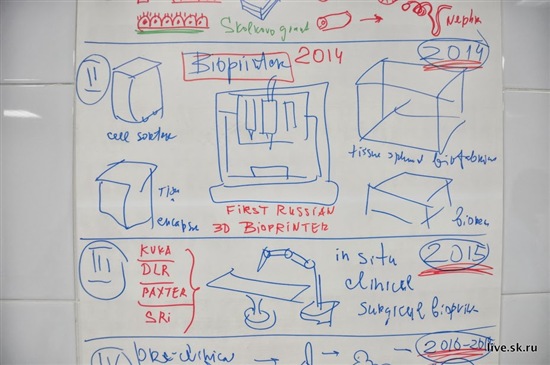 Skolkovo grant
II
Bioprinter 2014
2014
cell sorter
tissue spheroid biofabricator
Tissue
encapsu
FIRST RUSSIAN
3D BIOPRINTER
III
KUKA
DLR
PAXTER
SRi
in situ
clinical
surgical bioprin
2015
IV
pre-clinical
2016-201
live.sk.ru